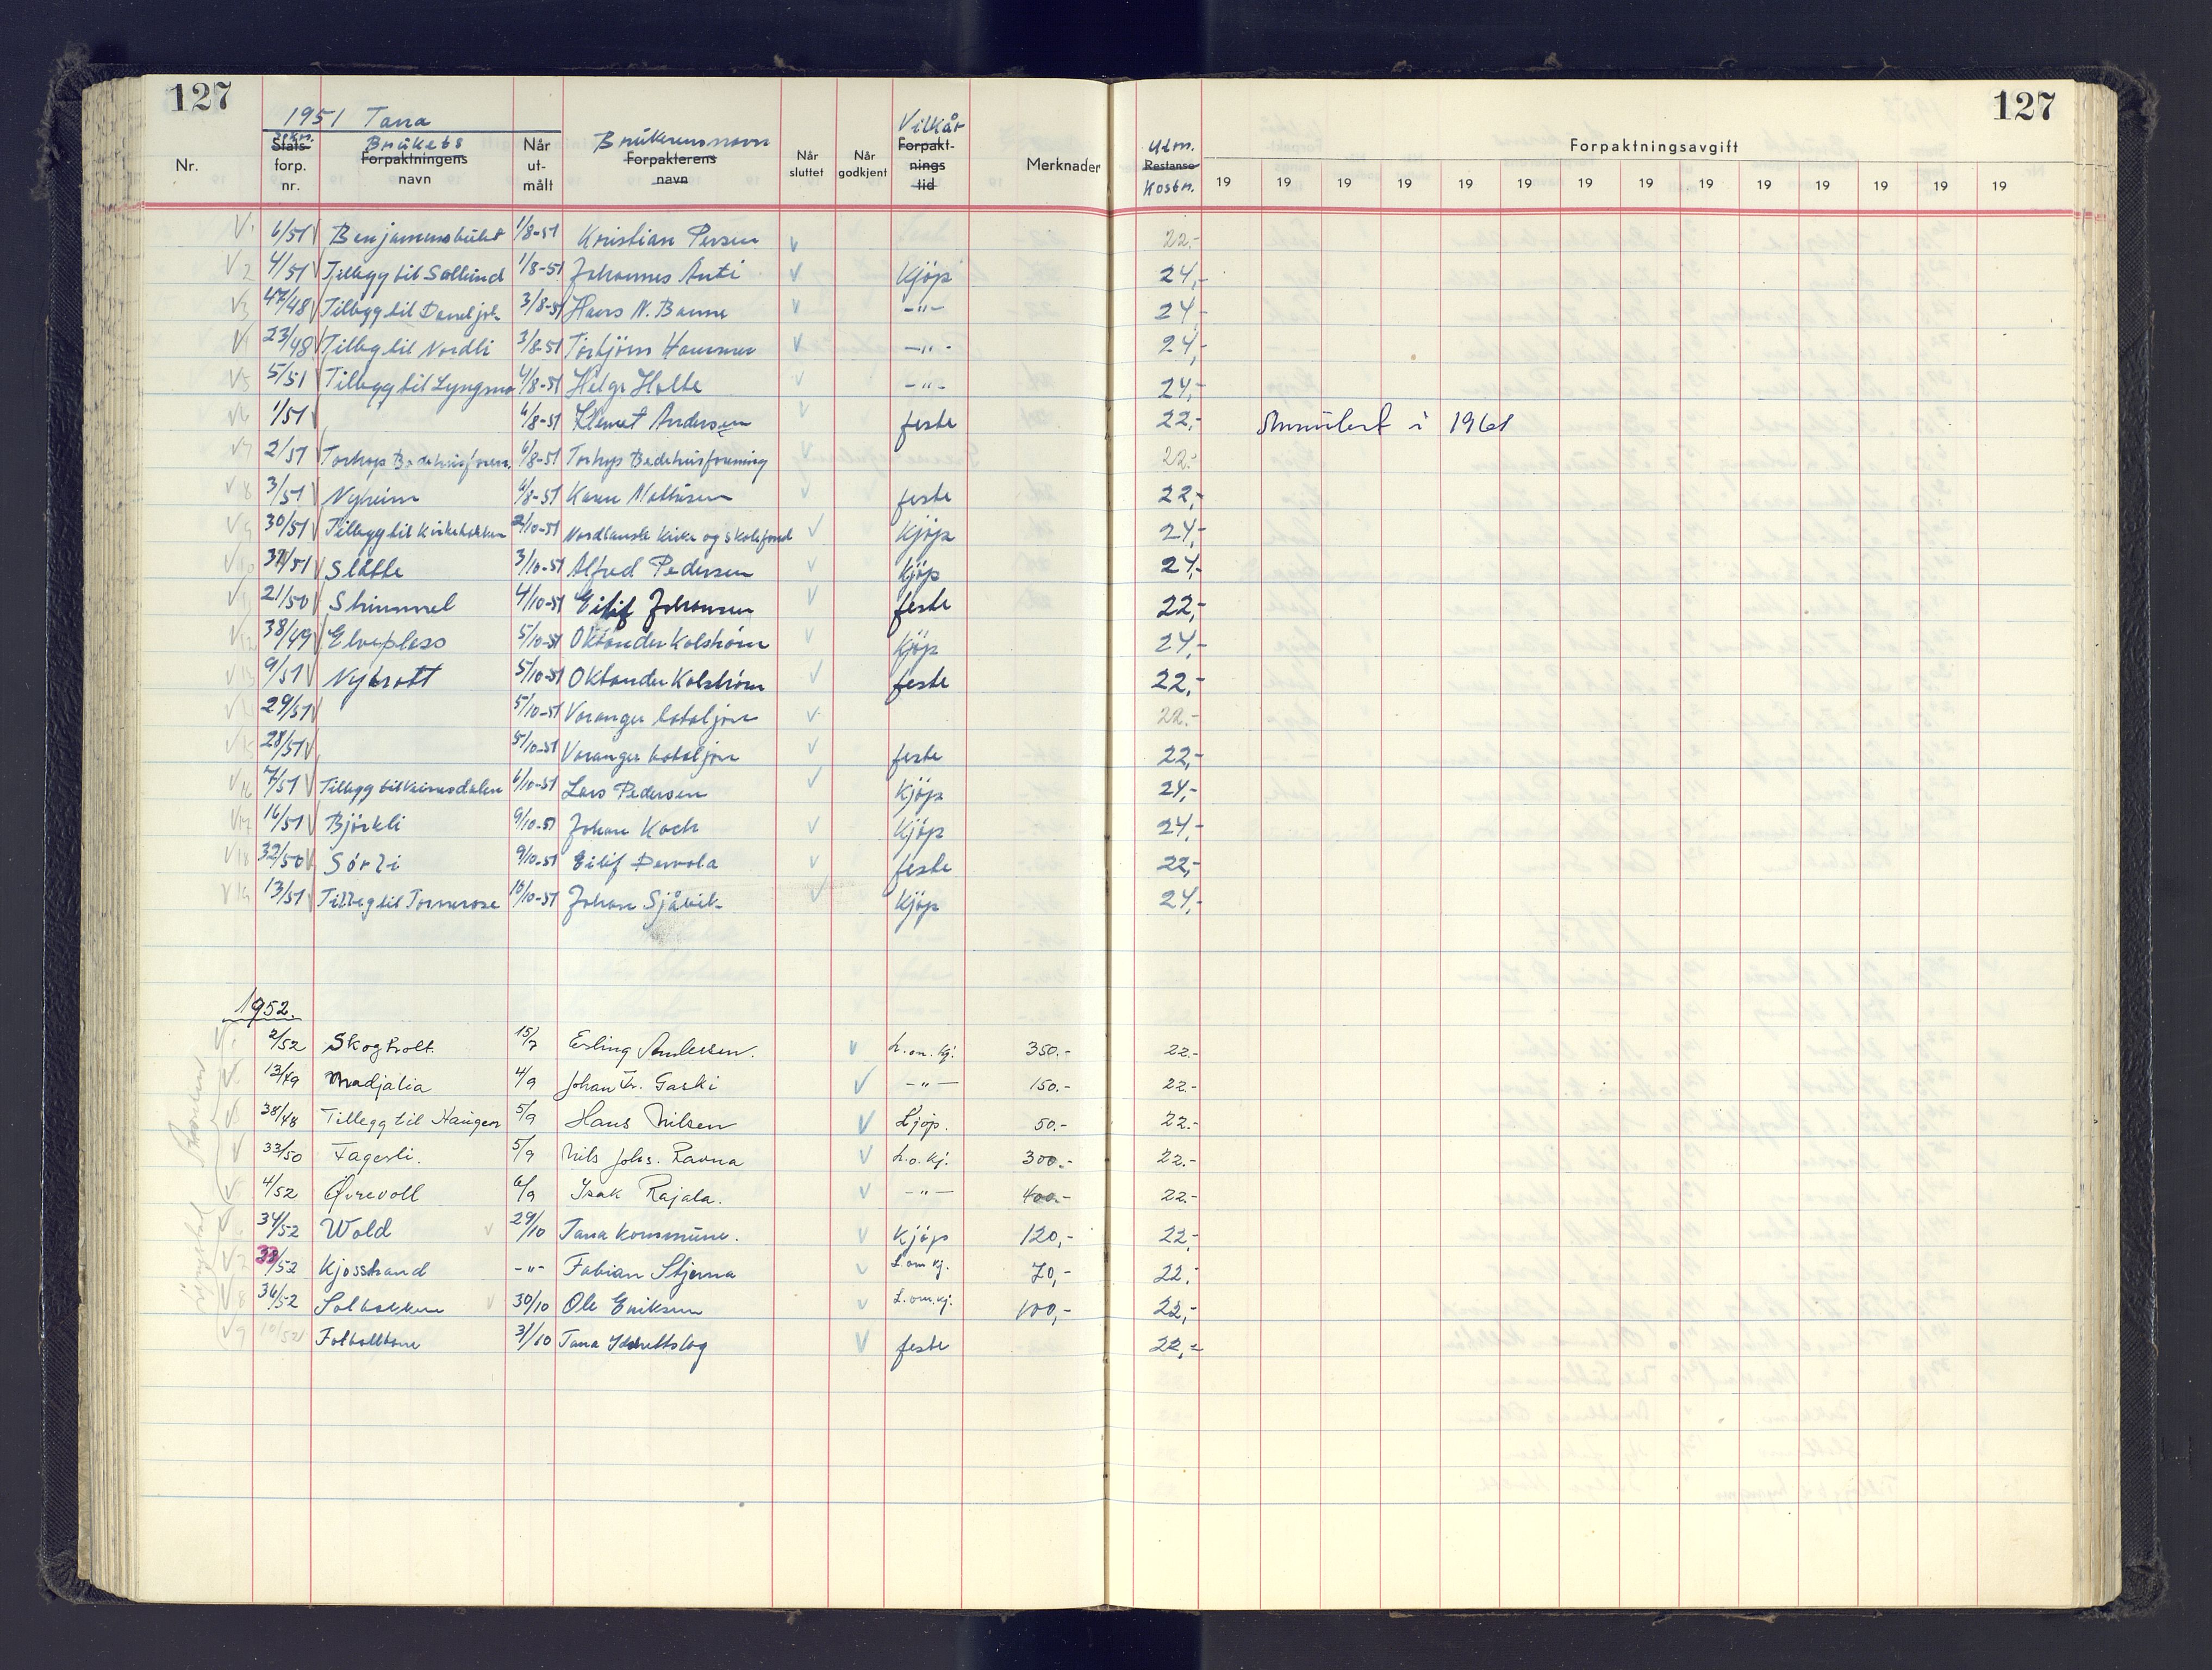 127
127
1951 Tana
Nr.
Stats- forp. nr.
Brukets
Forpaktningens navn
Når ut- målt
Brukerens navn
Forpakterens navn
Når sluttet
Når godkjent
Vilkår
Forpakt- nings tid
Merknader
Utm. Kostn.
Restanse
Forpaktningsavgift
19 19 19 19 19 19 19 19 19 19 19 19 19 19
V 1 6/51 V 1/8-51 Kristian Persen V 22.-
V 2 4/51 V Tillegg til Sollund 1/8-51 Johannes Anti V Kjöp 24,-
V 3 47/48 V Tillegg til 3/8-51 Hans N. V -"- 24,-
V 23/48 V Tilleg til Nordli 3/8-51 Torbjörn Hammer V -"- 24,-
V 5 5/51 Tillegg til Lyngmo 4/8-51 Helge Holte V -"- 24,-
V 6 1/51 V 6/8-51 Klemet Andersen V feste 22,- Annulert i 1961
V 7 2/51 V Torhop Bedehusforen. 6/8-51 Torhop Bedehusforening V 22.-
V 8 3/51 V Nyheim 6/8-51 Karen Mathisen V feste 22,-
V 9 30/51 V Tillegg til Kirkebakken 2/10-51 Nordlandske kirke og skolefond V Kjöp 24,-
V 10 /51 V Slåtte 3/10-51 Alfred Pedersen V Kjöp 24,-
V 21/50 V Skimmel 4/10-51 Eilif Johansen V feste 22,-
V 12 38/49 V Elveplass 5/10-51 Oktander Kolström V Kjöp 24,-
V 13 9/51 V Nybrott 5/10-51 Oktander Kolström V feste 22,-
V 29/51 V 5/10-51 Varanger bataljon V 22.-
V 15 28/51 V 5/10-51 Varanger bataljon V feste 22,-
V 16 7/51 V Tillegg til 6/10-51 Lars Pedersen V Kjöp 24,-
V 17 16/51 V Björkli 9/10-51 Johan Koch V Kjöp 24,-
V 18 32/50 V Sörli 9/10-51 Eilif Dervola V feste 22,-
V 19 13/51 V Tilleg til Tornerose 10/10-51 Johan Sjåvik V Kjöp 24,-
1952.
V 2/52 Skogholt. 15/7 Erling Andersen. V L. om. kj. 350.- 22.-
V 13/49 Madjalia 4/9 Johan Fr. Gaski V -"- 150.- 22.-
V 38/48 Tillegg til Haugen 5/9 Hans Nilsen V Kjöp. 50.- 22.-
V 33/50 Fagerli. 5/9 Nils Johs. Ravna V L. o. kj. 300.- 22.-
V 4/52 Øvrevoll 6/9 Isak Rajala. V -"- 400.- 22.-
V 34/52 Wold V 29/10 Tana kommune. V Kjöp 120,- 22,-
V 7 /52 Kjosstrand -"- Fabian Stjerna V L om kj. 70,- 22,-
V 8 36/52 Solbakken V 30/10 Ole Eriksen V L. om. kj. 100,- 22,-
V 9 10/52 Fotballbane 31/10 Tana Idrettslag V feste 22,-